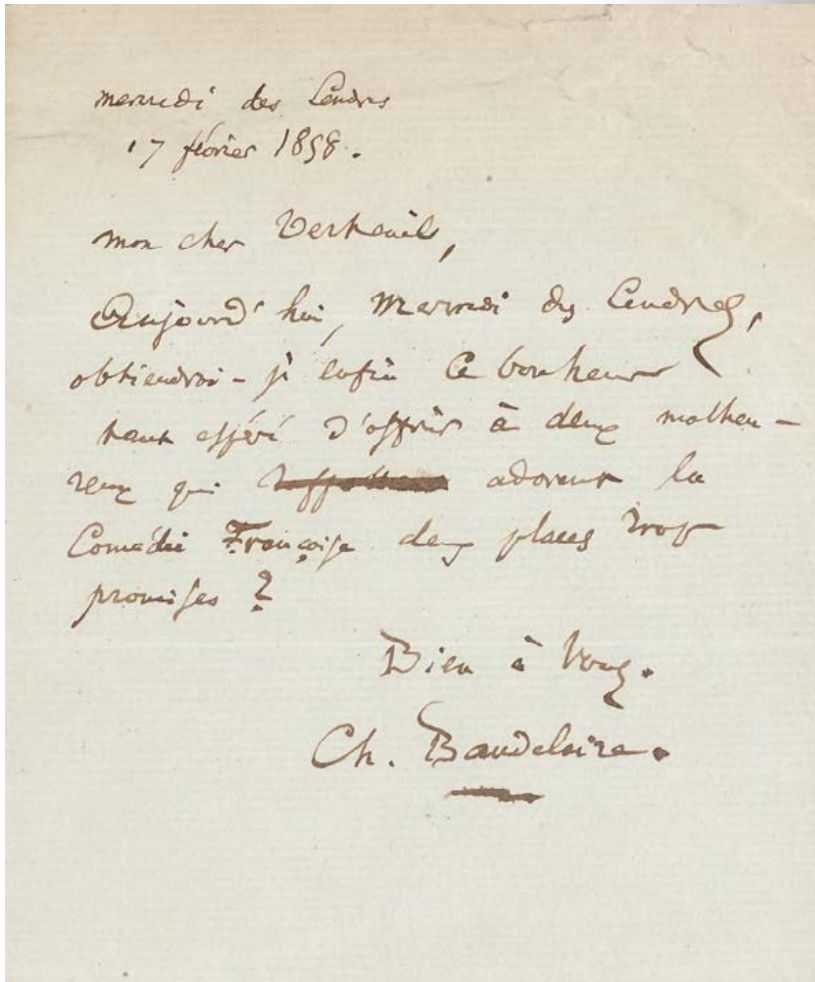 mercredi des Cendres
17 février 1858.
mon cher Verteuil,
Aujourd'hui, Mercredi des Cendres,
obtiendrai-je enfin ce bonheur
tant espéré d'offrir à deux malheu-
reux qui adorent la
Comédie Française deux places trop
promises ?
Bien à vous.
Ch. Baudelaire.